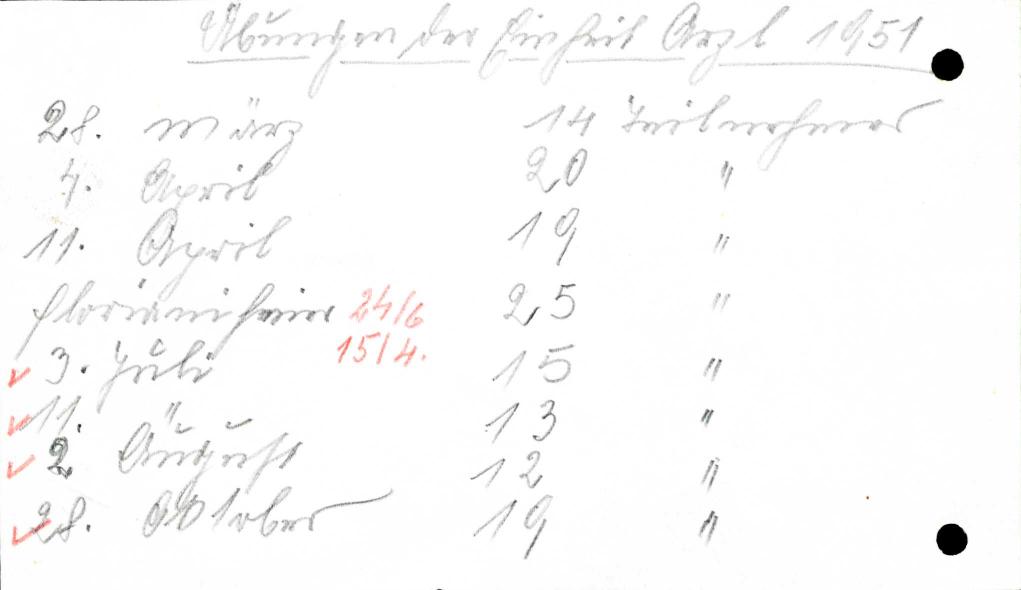 Übungen der Einheit Arzl 1951
28. März 14 Teilnehmer
4. April 20 "
11. April 19 "
Florianifeier 24/6 25 "
15/4.
3. Juli 15 "
11. " 13 "
2. August 12 "
28. Oktober 19 "